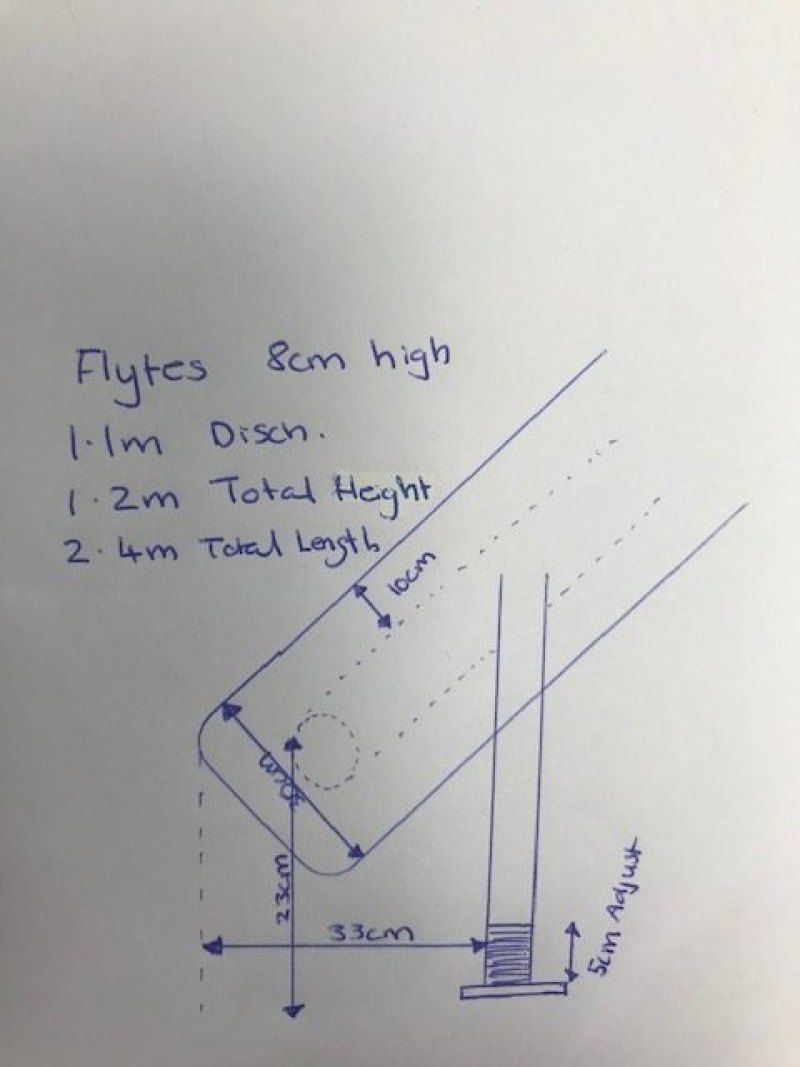 Flytes 8cm high
1.1m Disch.
1.2m Total Height
2.4m Total Length
10cm
30cm
23cm
33cm
5cm Adjust